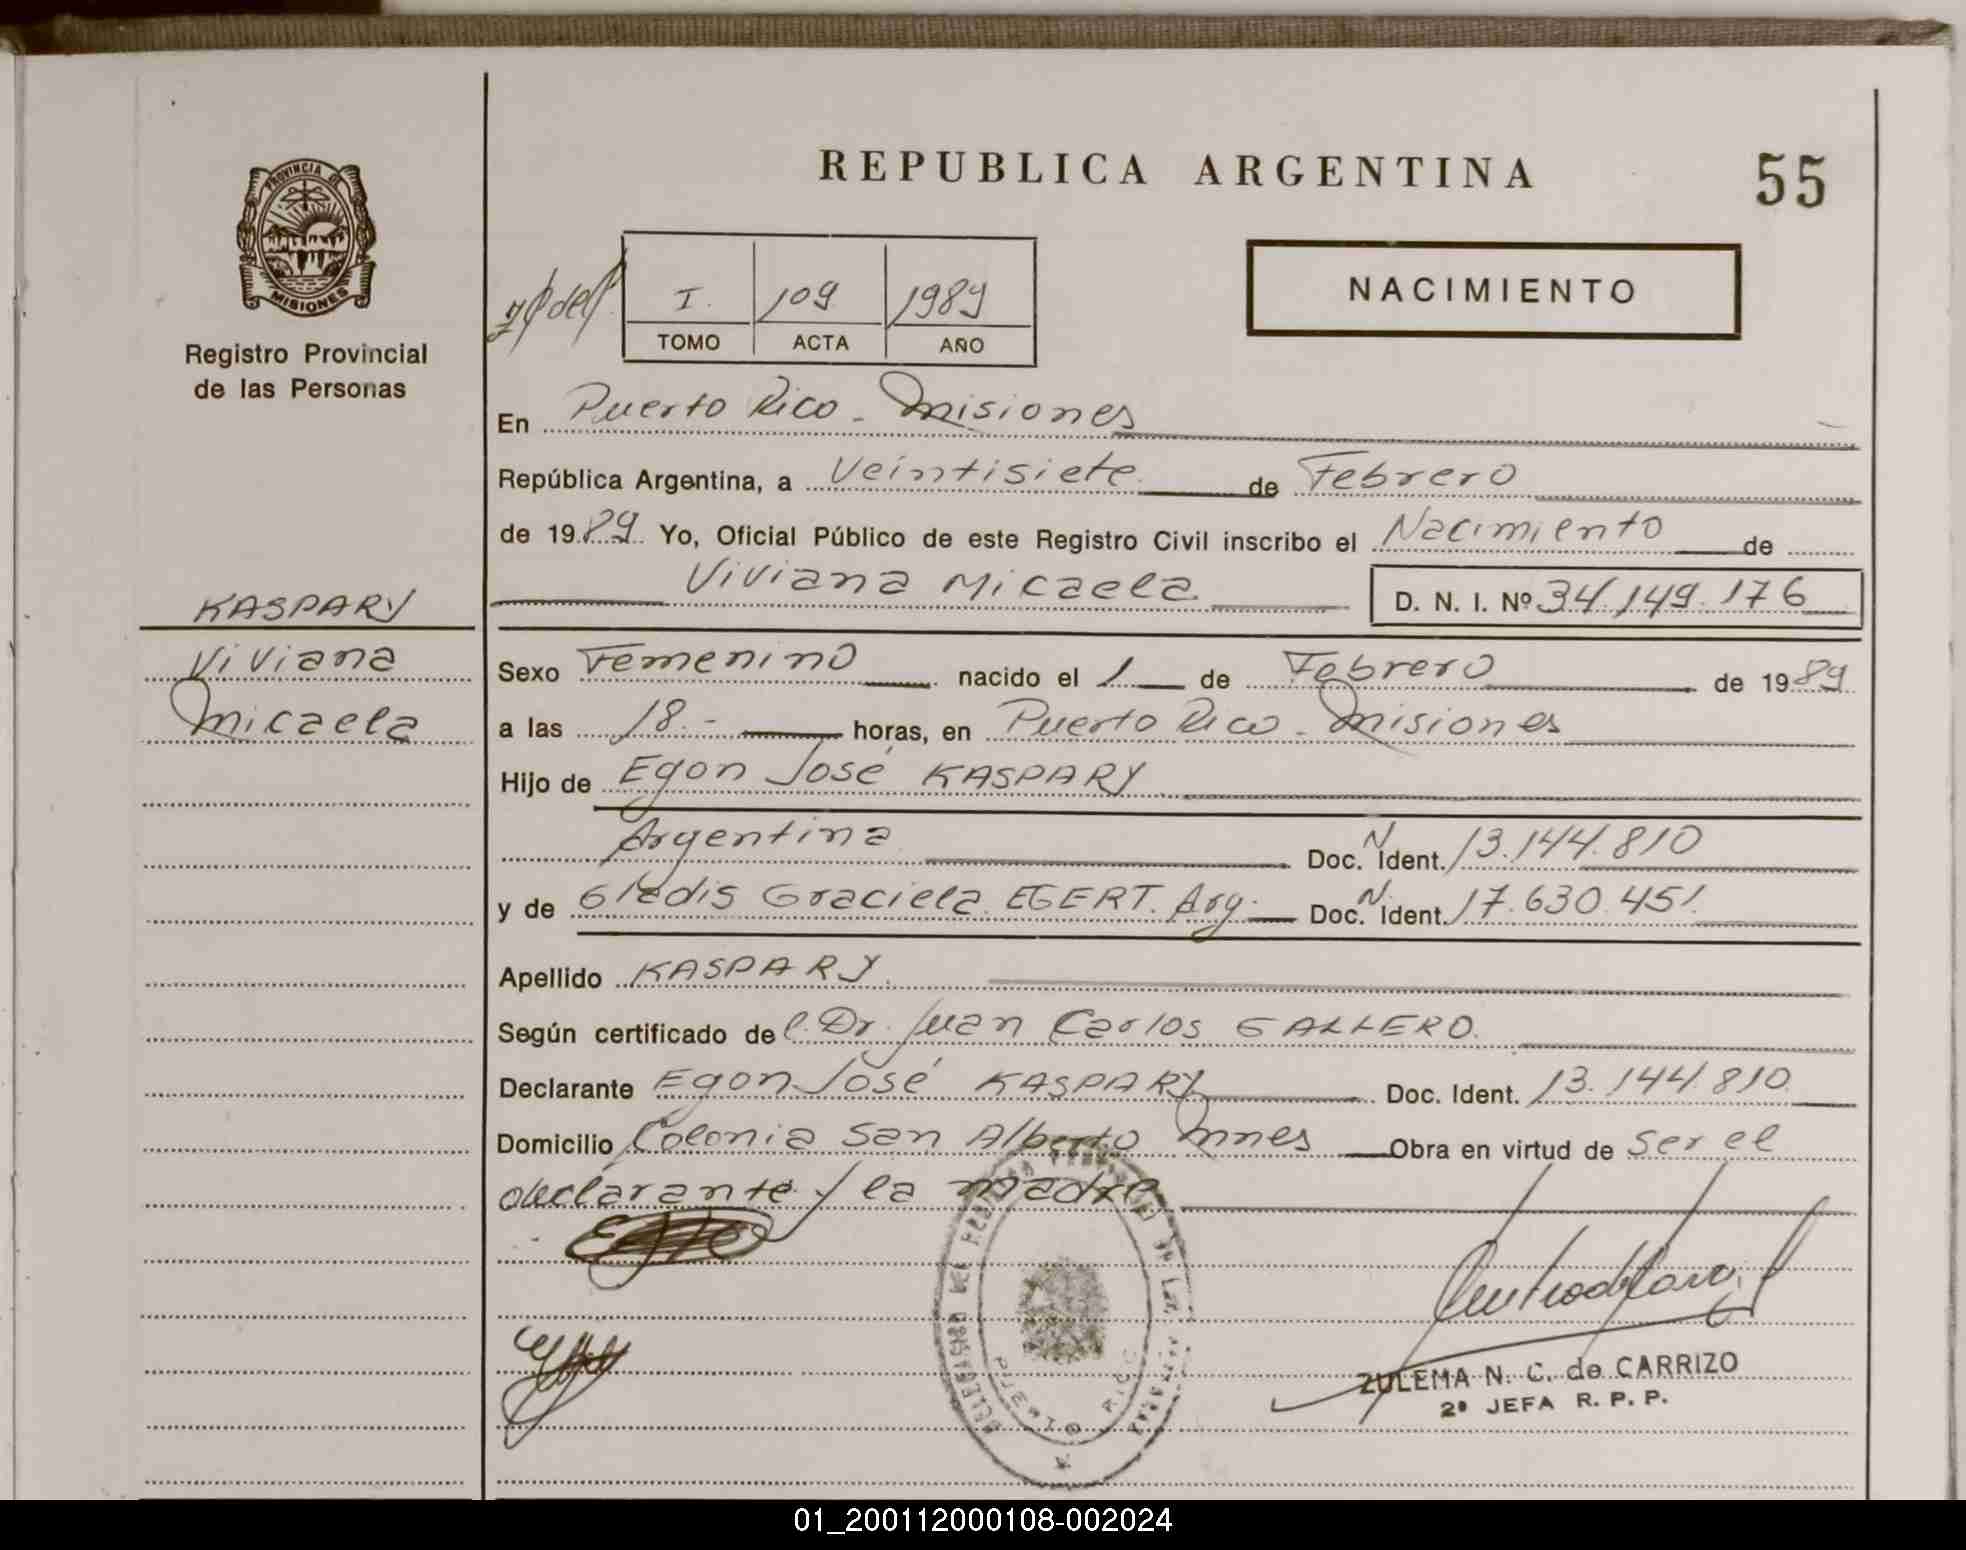 REPUBLICA ARGENTINA
55
PROVINCIA DE
MISIONES
Registro Provincial
de las Personas
I. 109 1989
TOMO ACTA AÑO
NACIMIENTO
En Puerto Rico - Misiones
República Argentina, a Veintisiete de Febrero
de 1989 Yo, Oficial Público de este Registro Civil inscribo el Nacimiento de
Viviana Micaela D. N. I. Nº 34.149.176
KASPARY
Viviana
Micaela
Sexo Femenino nacido el 1 de Febrero de 1989
a las 18.- horas, en Puerto Rico - Misiones
Hijo de Egon José KASPARY
Argentina Doc. N Ident. 13.144.810
y de Gladis Graciela EGERT. Arg. Doc. N. Ident. 17.630.451.
Apellido KASPARY.
Según certificado del. Dr. Juan Carlos GALLERO.
Declarante Egon José KASPARY Doc. Ident. 13.144.810
Domicilio Colonia San Alberto Mnes Obra en virtud de ser el
declarante y la madre
PUERTO RICO
ZULEMA N. C. de CARRIZO
2ª JEFA R. P. P.
01_200112000108-002024